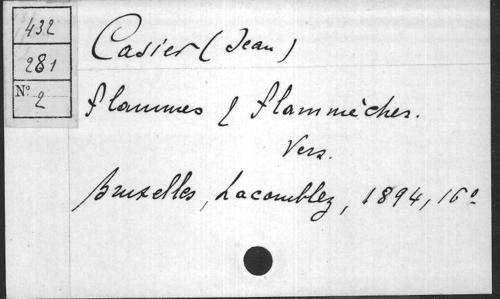 432
281
N° 2
Casier (Jean)
Flammes & flammèches.
Vers.
Bruxelles, Lacomblez, 1894, 16°